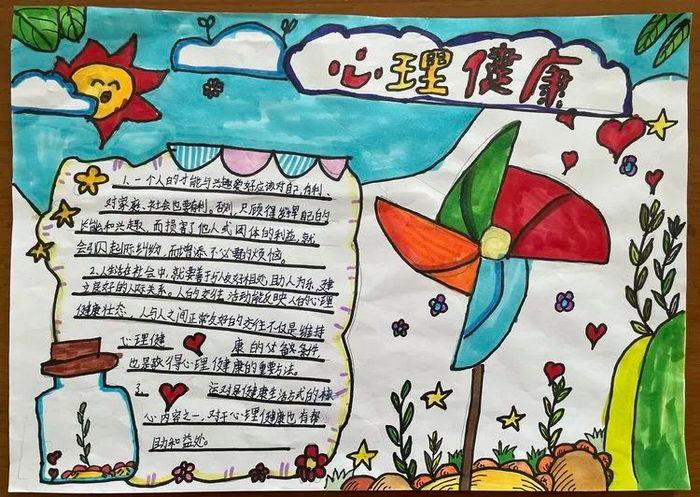 心理健康
1. 一个人的才能与兴趣爱好应该对自己有利、
对家庭、社会也要有利。否则,只顾得发挥自己的
长能和兴趣,而损害了他人或团体的利益,就
会引起人际纠纷,而增添不必要的烦恼。
2. 人生活在社会中,就要善于与人友好相处,助人为乐,建
立良好的人际关系。人的交往活动能反映人的心理
健康状态,人与人之间正常友好的交往不仅是维持
心理健康的必备条件,
也是获得心理健康的重要方法。
3. 运动是健康生活方式的核
心内容之一,对于心理健康也有帮
助和益处。